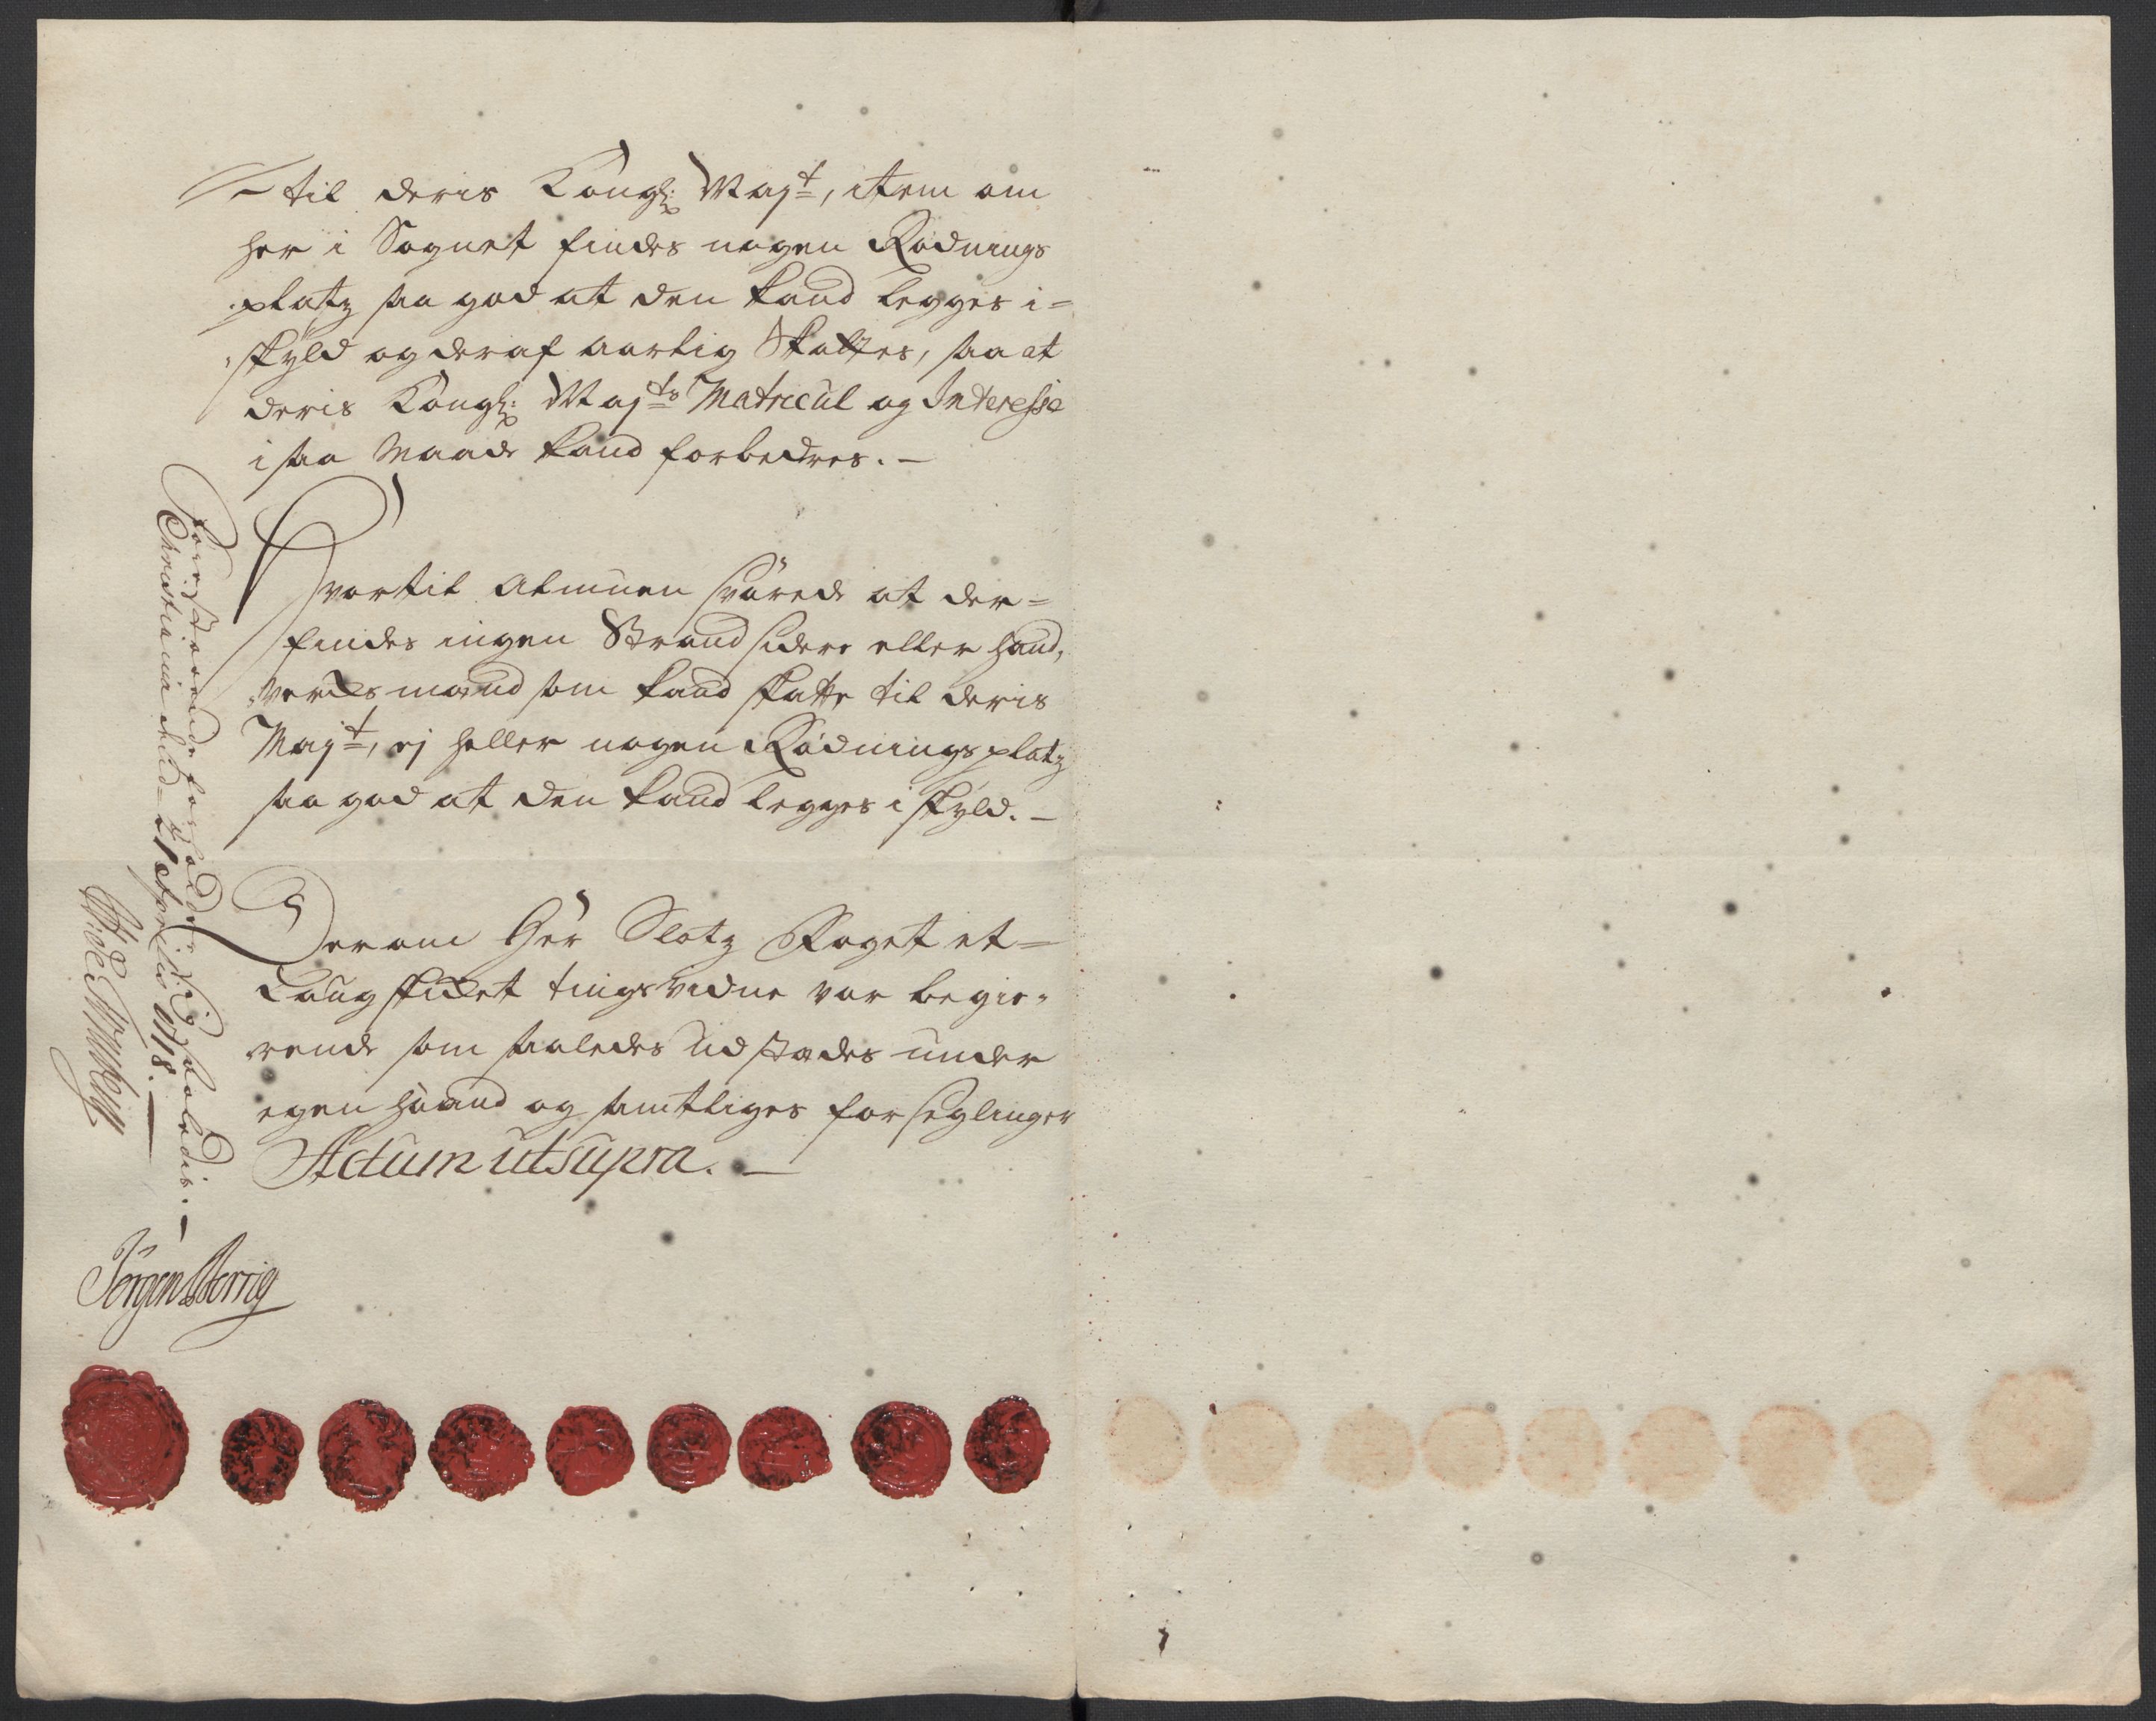 til deris Kongl: Majt, item om
her i Sognet findes nogen Rødnings
platz saa god at den kand legges i-
skyld og deraf aarlig Skattes, saa at
deris Kongl: Majts Matricul og Interesse
i saa Maade kand forbedres. –
Hvortil Almuen svarede at der-
findes ingen Strandsidere eller hand,
verks mænd som kand skatte til deris
Majt, ej heller nogen Rødnings platz
saa god at den kand legges i skyld. –
Derom Her Slotz Foget et-
Laugskicket tingsvidne var begie,
rende som saaledes udstædes under
egen haand og samtliges forseglinger
Actum ut supra. –
Forestaaende forholder sig saaledis. –
Christiania d. 21 1718. –
Jørgen